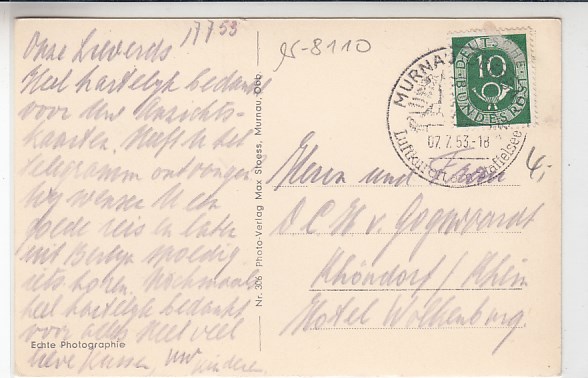 17753
Onze Lieverds
Heel hartelijk bedankt
voor Uw Ansichts-
kaarten. Heeft U het
telegramm ontvangen
wij wensen U een
goede reis en later
uit Berlyn spoedig
iets horen. Nochmaals
heel hartelijk bedankt
voor alles Heel veel
lieve Kussen, Uw
kinderen
Echte Photographie
Nr. 306 Photo-Verlag Max Stoess, Murnau, Obb.
95-8110
MURNAU
07.7.53.-18
Luftkurort Staffelsee
DEUTSCHE BUNDESPOST
10
4,-
Herrn und Frau
O C H v Gogh
Rhöndorf / Rhein
Hotel Wolkenburg.